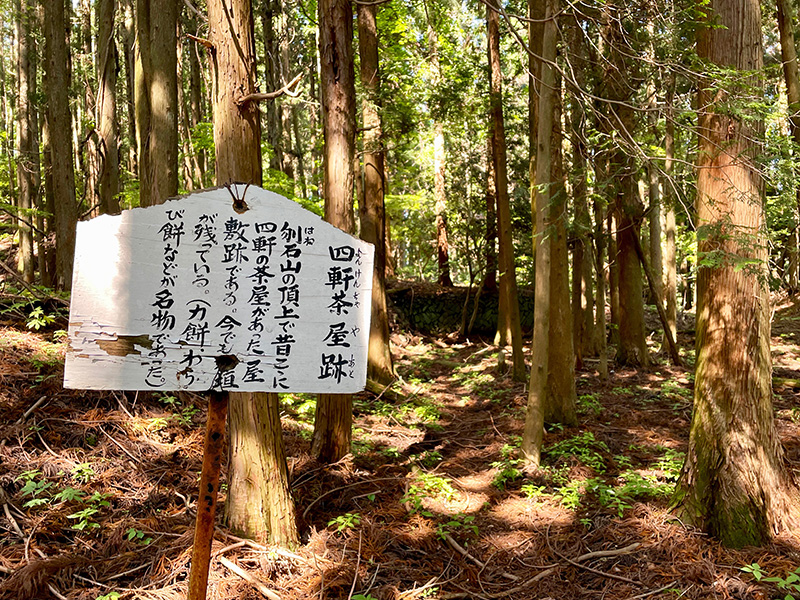 四軒茶屋跡
よんけんちゃや あと
はね
刎石山の頂上で昔ここに
四軒の茶屋があった屋
敷跡である。今でも石垣
が残っている。(力餅、わら
び餅などが名物であった。)